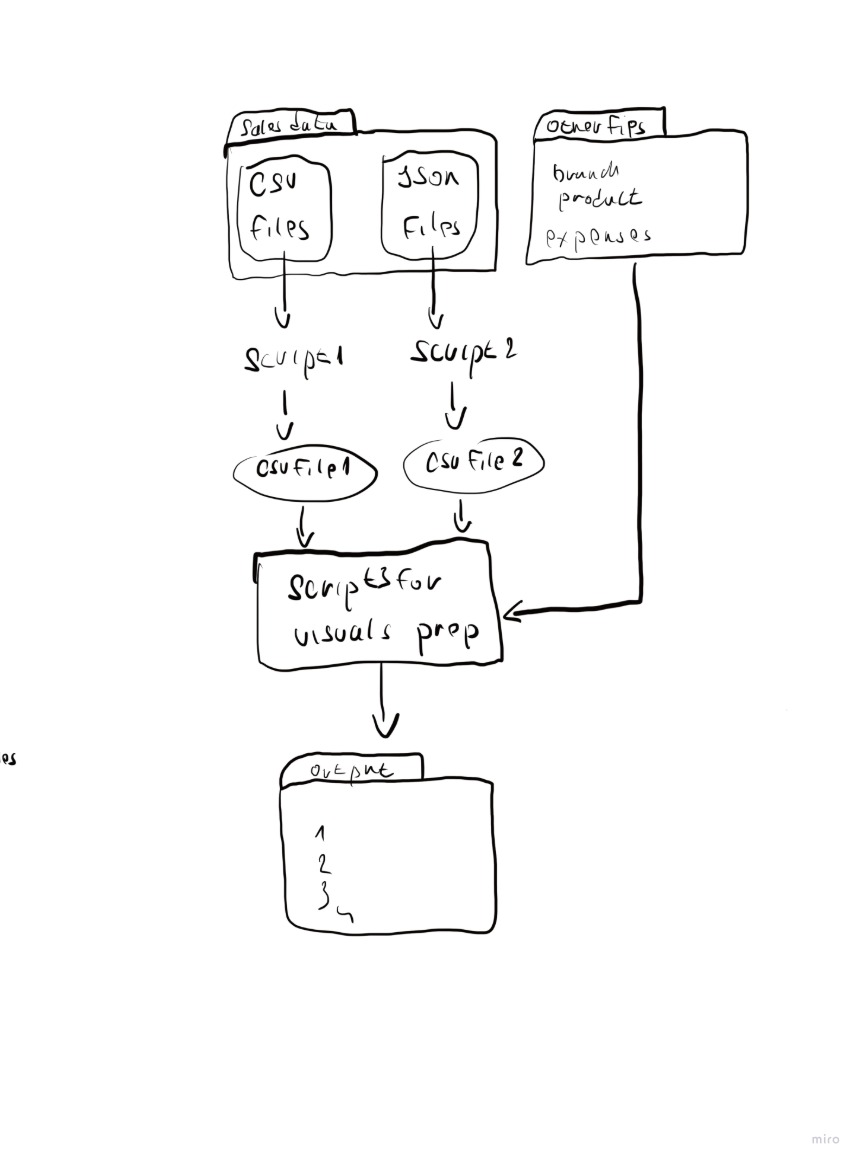 Sales data
other files
CSV
files
JSON
Files
branch
product
expenses
Script1
Script2
csv file1
csv file2
script3 for
visuals prep
es
output
1
2
3
4
miro